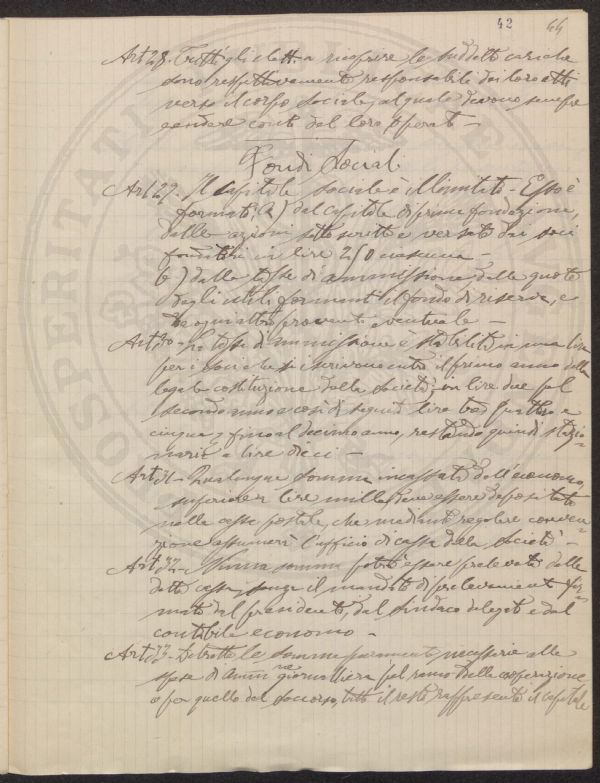 42 44
Art 28. Tutti gli eletti a ricoprire le suddette cariche
sono rispettivamente responsabili dei loro atti
verso il corpo sociale, al quale devono sempre
rendere conto del loro operato -
Fondi Sociali
Art 29. Il capitale sociale è illimitato - Esso è
formato: a) dal capitale di prima fondazione,
dalle azioni sottoscritte e versate dai soci
fondatori in lire 250 -
b) dalle tasse di ammissione, dalle quote
degli utili formanti il fondo di riserva, e
da qui altro provento eventuale -
Art 30 - La tassa di ammissione è stabilita in una lira
per i soci che si iscrivono entro il primo anno della
legale costituzione della società, in lire due pel
secondo anno e così di seguito lire tre, quattro e
cinque, fino al decimo anno, restando quindi stazio-
naria a lire dieci -
Art 31 - Qualunque somma incassata dall'economo,
superiore a lire mille, deve essere depositata
nella cassa postale, che mediante regolare conven-
zione assumerà l'ufficio di cassa della società -
Art 32 - Niuna somma potrà essere prelevata dalla
detta cassa senza il mandato di prelevamento fir-
mato dal presidente, dal sindaco delegato e dal
contabile economo -
Art 33 - Detratte le somme necessarie alle
spese di ammne giornaliera pel ramo della cooperazione
e per quello del soccorso, tutto il resto rappresenta il capitale